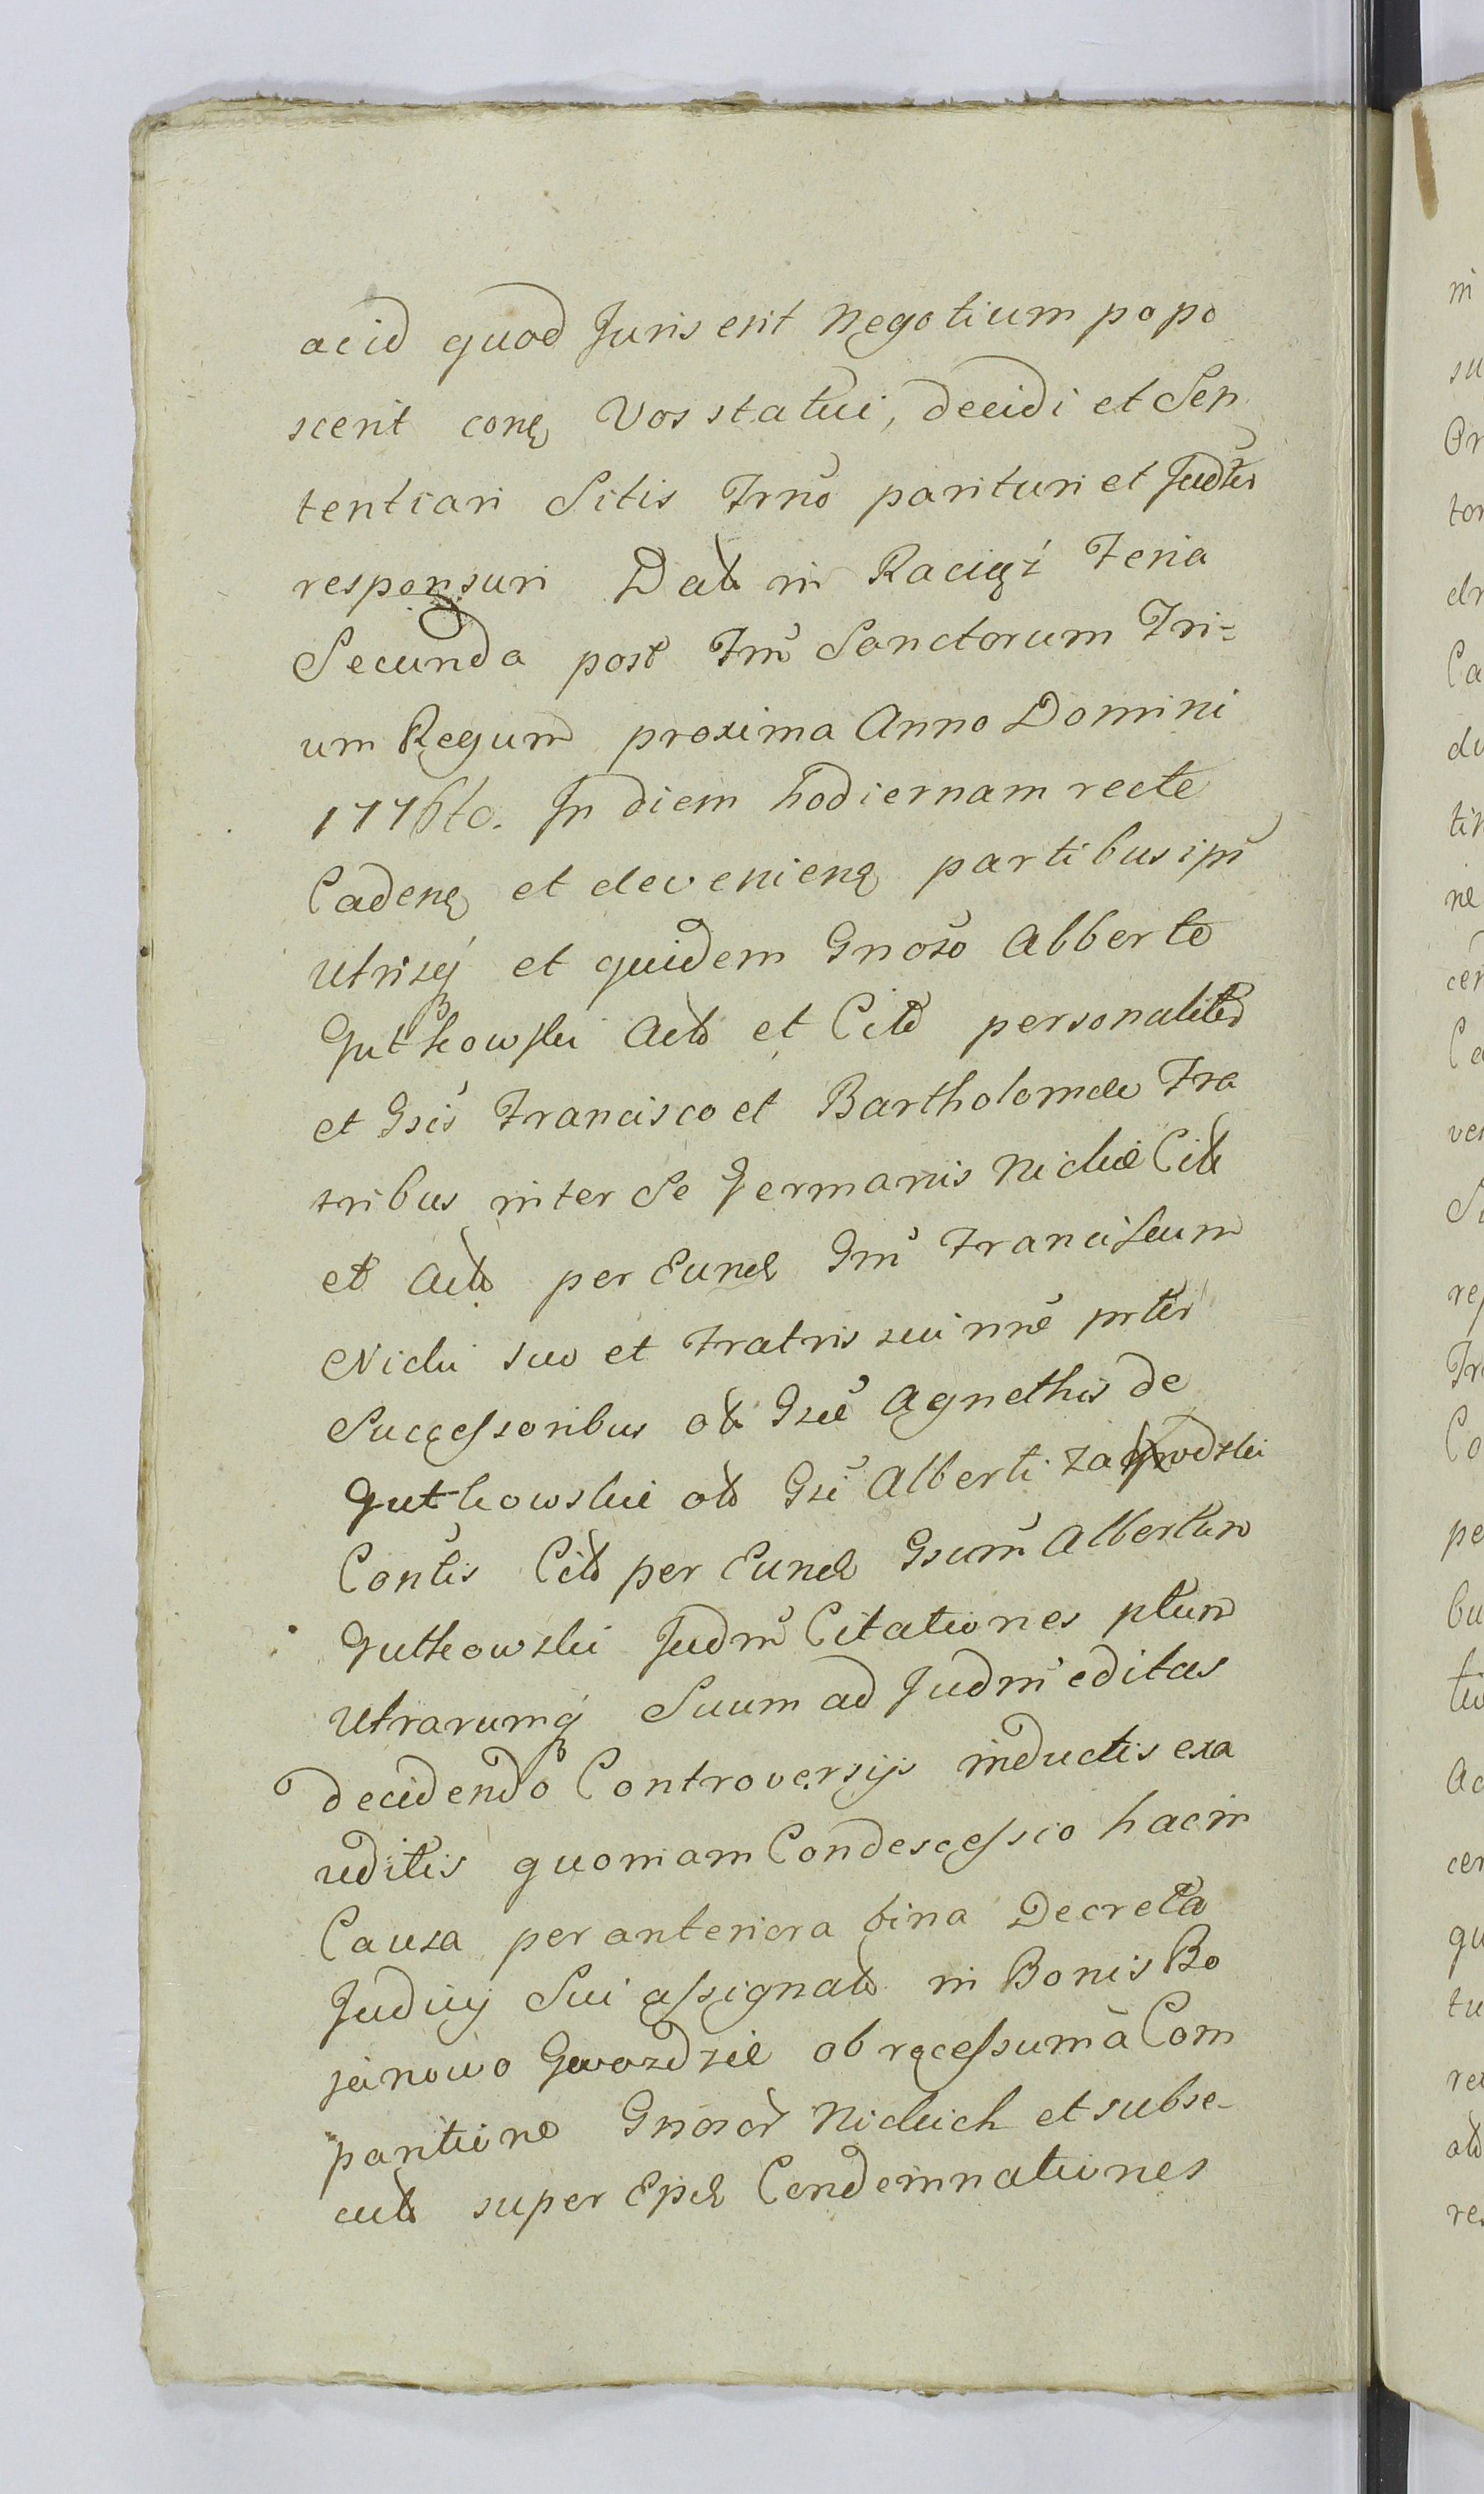 ac id quod Juris erit negotium popo
scerit conq Vos statui, decidi et Sen
tentiari Sitis Trnõ parituri et Judtr
responsuri Dat in Raciąż Feria
Secunda post Fm Sanctorum Tri=
um Regum proxima Anno Domini
1776to. In diem hodiernam recte
Cadenq et devenienq partibus ipi
utrisq et quidem Gnoso Alberto
Gutkowski Act et Cit personaliter
et Gsis Francisco et Bartholomeo Fra
tribus inter Se Germanis Nickie Cit
et Act per Eund Gm Franciscum
Nicki suo et Fratris sui nne prter
Successoribus ol Gsæ Agnethis de
Gutkowskie ol Gsi Alberti Zawodzki
Contis Cit per Eund Gsum Albertum
Gutkowski Judm Citationes ptium
Utrarumq Suum ad Judm editas
decidendo Controversijs inductis exa
uditis quoniam Condescessio hac in
Causa per anteriora bina Decreta
Judicij Sui assignat in Bonis Bo
janowo Gwozdzie ob recessum à Com
paritione Gnosor Nickich et subse-
cut super Epd Condemnationes